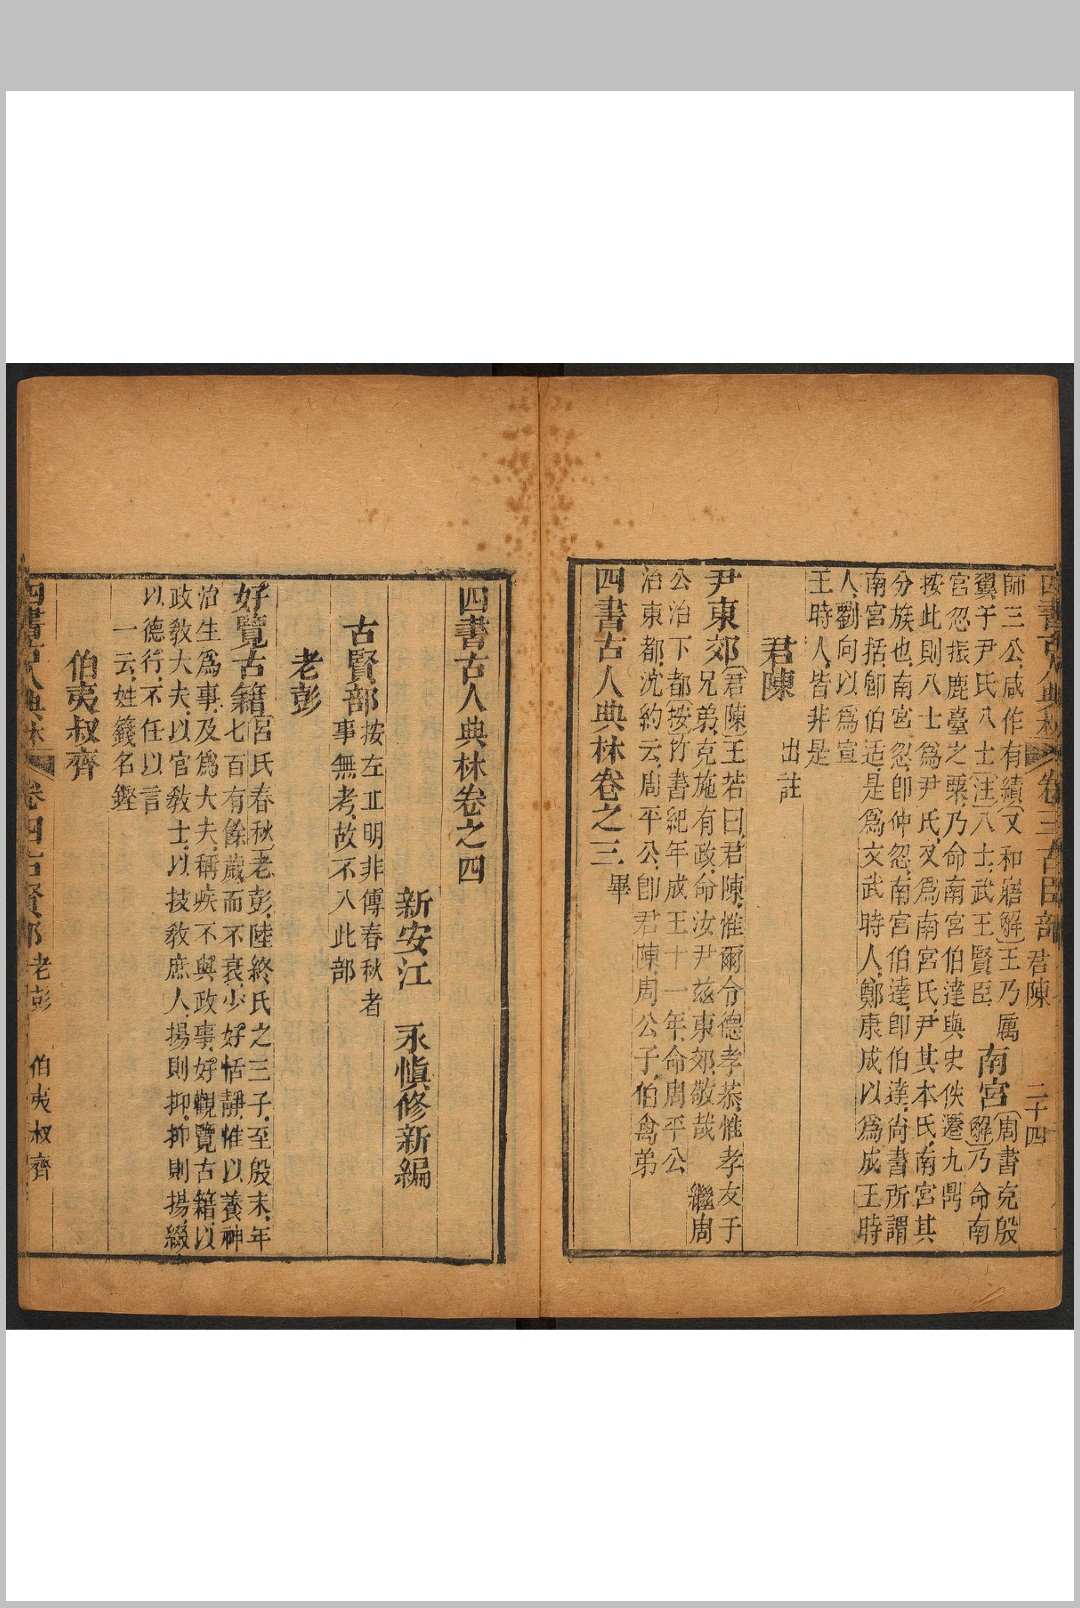 四書古人典林 卷三古臣部 君陳 二十四
師三公咸作有績〔又和寤解〕王乃厲
翼于尹氏八士〔注〕八士武王賢臣
南宮〔周書克殷
解〕乃命南
宮忽振鹿臺之粟乃命南宮伯達與史佚遷九鼎
按此則八士爲尹氏又爲南宮氏尹其本氏南宮其
分族也南宮忽卽仲忽南宮伯達卽伯達尚書所謂
南宮括卽伯适是爲文武時人鄭康成以爲成王時
人劉向以爲宣
王時人皆非是
君陳
出註
尹東郊〔君陳〕王若曰君陳惟爾令德孝恭惟孝友于
兄弟克施有政命汝尹兹東郊敬哉
繼周
公治下都〔按〕竹書紀年成王十一年命周平公
治東都沈約云周平公卽君陳周公子伯禽弟
四書古人典林卷之三 畢
四書古人典林卷之四
新安江 永愼修新編
古賢部
按左丘明非傳春秋者
事無考故不入此部
老彭
好覽古籍
宮氏春秋〔老彭〕陸終氏之三子至殷末年
七百有餘歲而不衰少好恬靜惟以養神
治生爲事及爲大夫稱疾不與政事好觀覽古籍以
政敎大夫以官敎士以技敎庶人揚則抑抑則揚綴
以德行不任以言
一云姓籛名鏗
伯夷叔齊
四書古人典林 卷四古賢部 老彭 伯夷叔齊